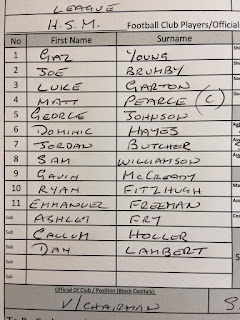 LEAGUE
H.S.M. Football Club Players/Official
No First Name Surname
1 GAZ YOUNG
2 JOE BRUMBY
3 LUKE GARTON
4 MATT PEARCE (C)
5 GEORGE JOHNSON
6 DOMINIC HAYES
7 JORDAN BUTCHER
8 SAM WILLIAMSON
9 GAVIN McCREADY
10 RYAN FITZHUGH
11 EMMANUEL FREEMAN
Sub ASHLEY FRY
Sub CALLUM HOLLER
Sub DAN LAMBERT
Sub
Sub
Official Of Club / Position (Block Capitals):
V/CHAIRMAN